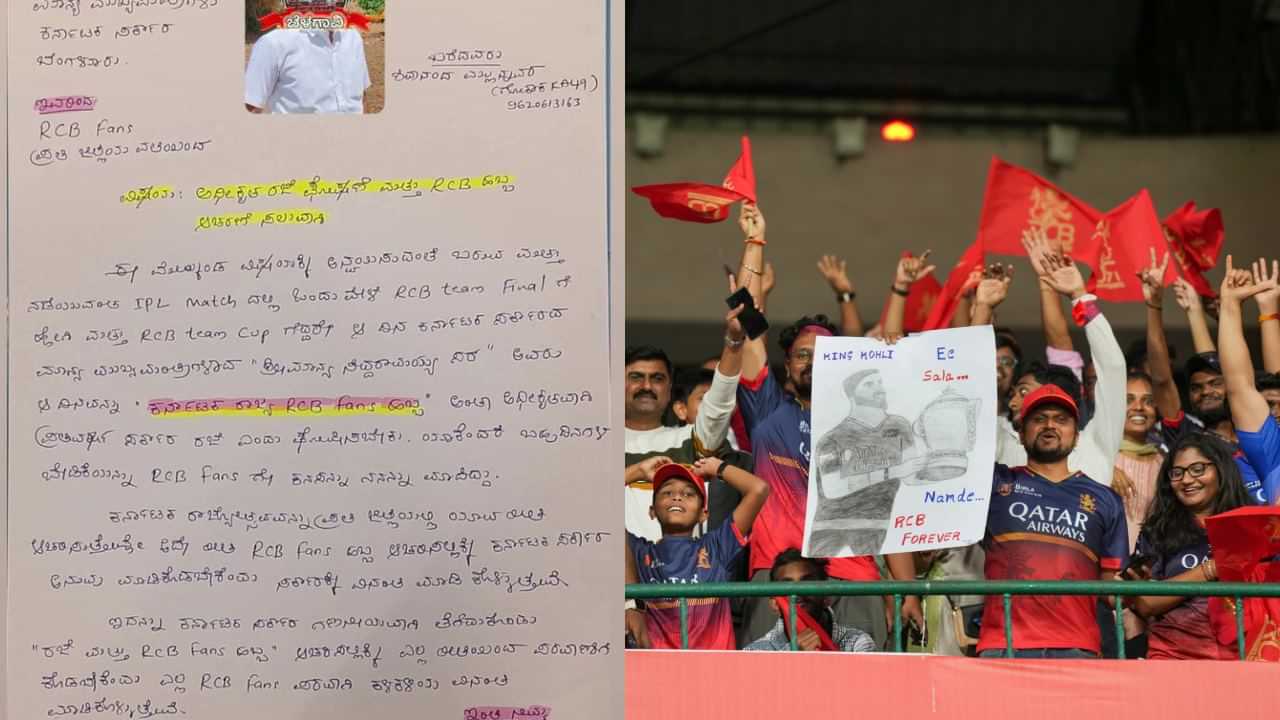 ಮಾನ್ಯ ಮುಖ್ಯಮಂತ್ರಿಗಳು
ಕರ್ನಾಟಕ ಸರ್ಕಾರ
ಬೆಂಗಳೂರು.
ಬೆಳಗಾವಿ
ಬರೆದವರು
ಶಿವಾನಂದ ಮಲ್ಲಣ್ಣವರ
(ಗೋಕಾಕ KA49)
9620613163
ಇವರಿಂದ
RCB Fans
ಪ್ರತಿ ಜಿಲ್ಲೆಯ ವತಿಯಿಂದ
ವಿಷಯ: ಅಧೀಕೃತ ರಜೆ ಘೋಷಣೆ ಮತ್ತು RCB ಹಬ್ಬ
ಆಚರಣೆ ಸಲುವಾಗಿ
ಈ ಮೇಲ್ಕಂಡ ವಿಷಯಕ್ಕೆ ಅನ್ವಯಿಸುವಂತೆ ಬರುವ ಮತ್ತು
ನಡೆಯುವಂತ IPL Match ದಲ್ಲಿ ಒಂದು ವೇಳೆ RCB team Final ಗೆ
ಹೋಗಿ ಮತ್ತು RCB team Cup ಗೆದ್ದರೇ ಆ ದಿನ ಕರ್ನಾಟಕ ಸರ್ಕಾರದ
ಮಾನ್ಯ ಮುಖ್ಯಮಂತ್ರಿಗಳಾದ "ಶ್ರೀಮಾನ್ಯ ಸಿದ್ದರಾಮಯ್ಯ ಸರ" ಅವರು
ಆ ದಿನವನ್ನು "ಕರ್ನಾಟಕ ರಾಜ್ಯ RCB fans ಹಬ್ಬ" ಅಂತಾ ಅಧೀಕೃತವಾಗಿ
ಪ್ರತಿವರ್ಷ ಸರ್ಕಾರ ರಜೆ ಎಂದು ಘೋಷಿಸಬೇಕು. ಯಾಕೆಂದರೆ ಬಹುದಿನಗಳ
ಬೇಡಿಕೆಯನ್ನು RCB Fans ಗೇ ಕನಸನ್ನು ನನಸನ್ನು ಮಾಡಿದ್ದು.
ಕರ್ನಾಟಕ ರಾಜ್ಯೋತ್ಸವವನ್ನು ಪ್ರತಿ ಜಿಲ್ಲೆಯಲ್ಲಿ ಯಾವ ರೀತಿ
ಆಚರಿಸುತ್ತೇವೋ ಅದೇ ರೀತಿ RCB Fans ಹಬ್ಬ ಆಚರಿಸಲಿಕ್ಕೆ ಕರ್ನಾಟಕ ಸರ್ಕಾರ
ಅನುವು ಮಾಡಿಕೊಡಬೇಕೆಂದು ಸರ್ಕಾರಕ್ಕೆ ವಿನಂತಿ ಮಾಡಿ ಕೊಳ್ಳುತ್ತೇವೆ.
ಇದನ್ನು ಕರ್ನಾಟಕ ಸರ್ಕಾರ ಗಣನೀಯವಾಗಿ ತೆಗೆದುಕೊಂಡು
"ರಜೆ ಮತ್ತು RCB Fans ಹಬ್ಬ" ಆಚರಿಸಲಿಕ್ಕೆ ಎಲ್ಲ ರೀತಿಯಿಂದ ಪರವಾಣಗಿ
ಕೊಡಬೇಕೆಂದು ಎಲ್ಲ RCB Fans ಪರವಾಗಿ ಕಳಕಳಿಯ ವಿನಂತಿ
ಮಾಡಿಕೊಳ್ಳುತ್ತೇವೆ.
ಇಂತಿ ನಿಮ್ಮ
KING KOHLI
Ee
Sala...
Namde...
RCB
FOREVER...
RCB
BIRLA
QATAR
AIRWAYS
QA